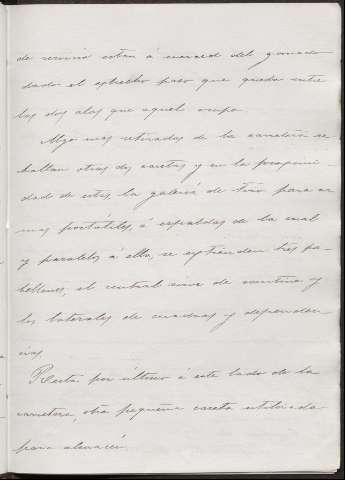 de servicio estan á merced del ganado
dado el estrecho paso que queda entre
las dos alas que aquel ocupa.
Algo mas retirados de la carretera se
hallan otras dos casetas y en la proximi-
dad de estas la galeria de tiro para ar
mas portátiles, á espaldas de la cual
y paralelos á ella, se extienden tres pa-
bellones, el central sirve de cantina y
los laterales de cuadras y dependen-
cias.
Resta por último á este lado de la
carretera, otra pequeña caseta utilizada
para almacén.